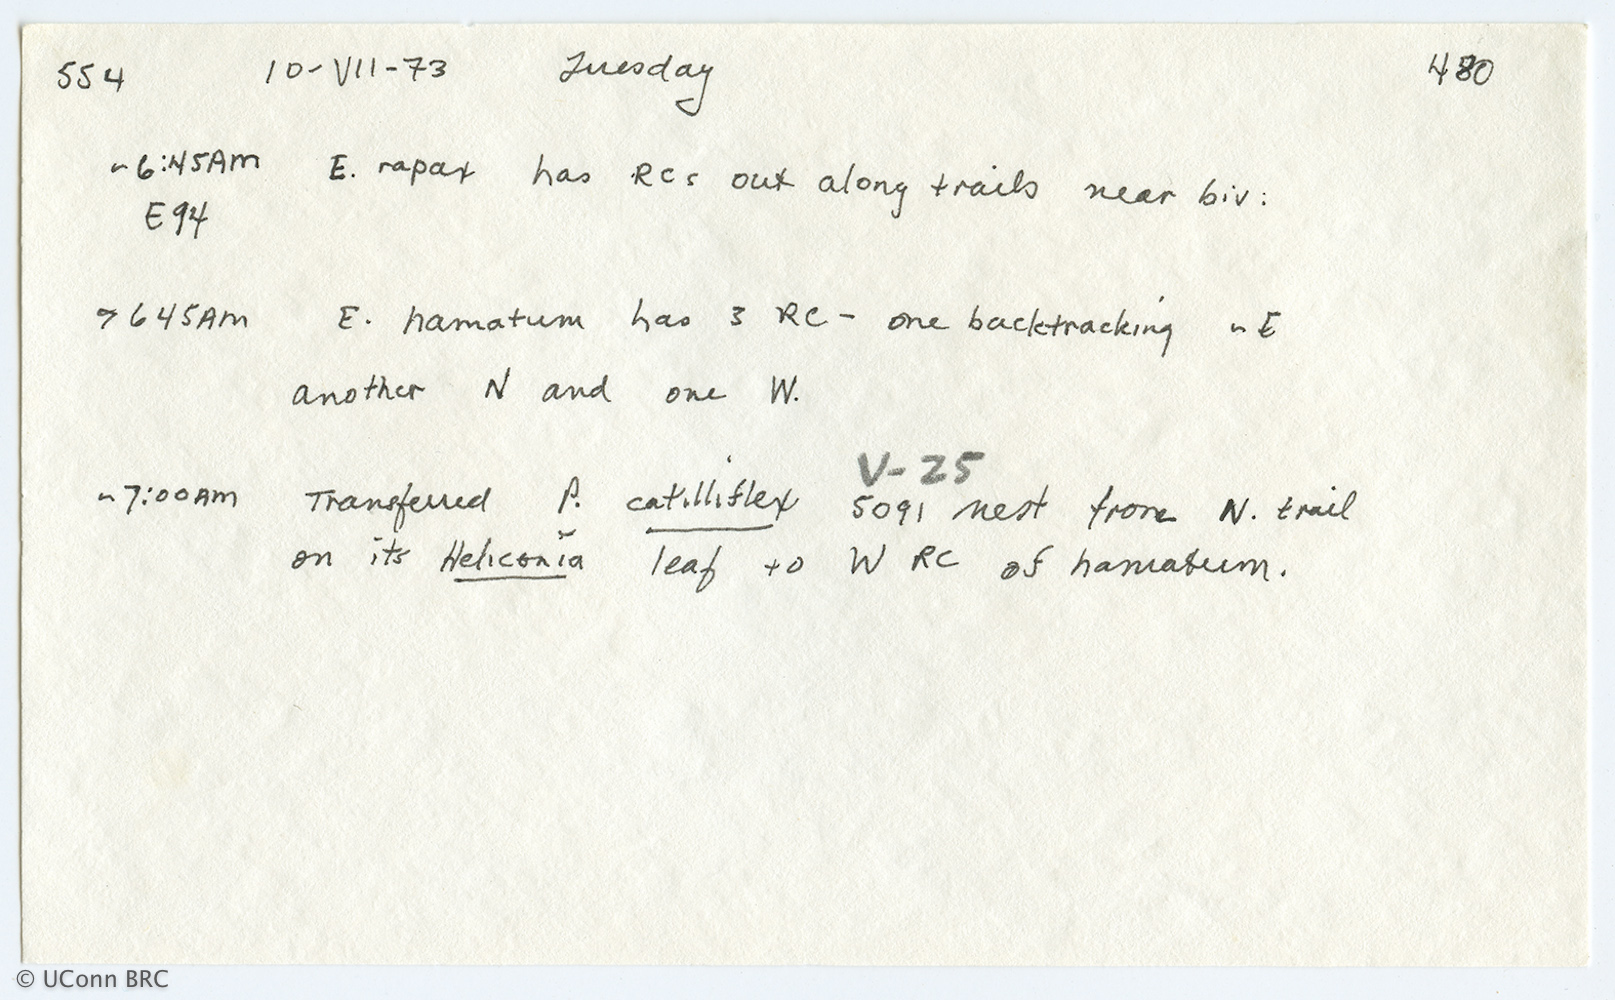 554 10-VII-73 Tuesday 480
~6:45AM E. rapax has RCs out along trails near biv:
E94
> 645AM E. hamatum has 3 RC - one backtracking ~E
another N and one W.
V-25
~7:00AM Transferred P. catilliflex 5091 nest from N. trail
on its Heliconia leaf to W RC of hamatum.
© UConn BRC